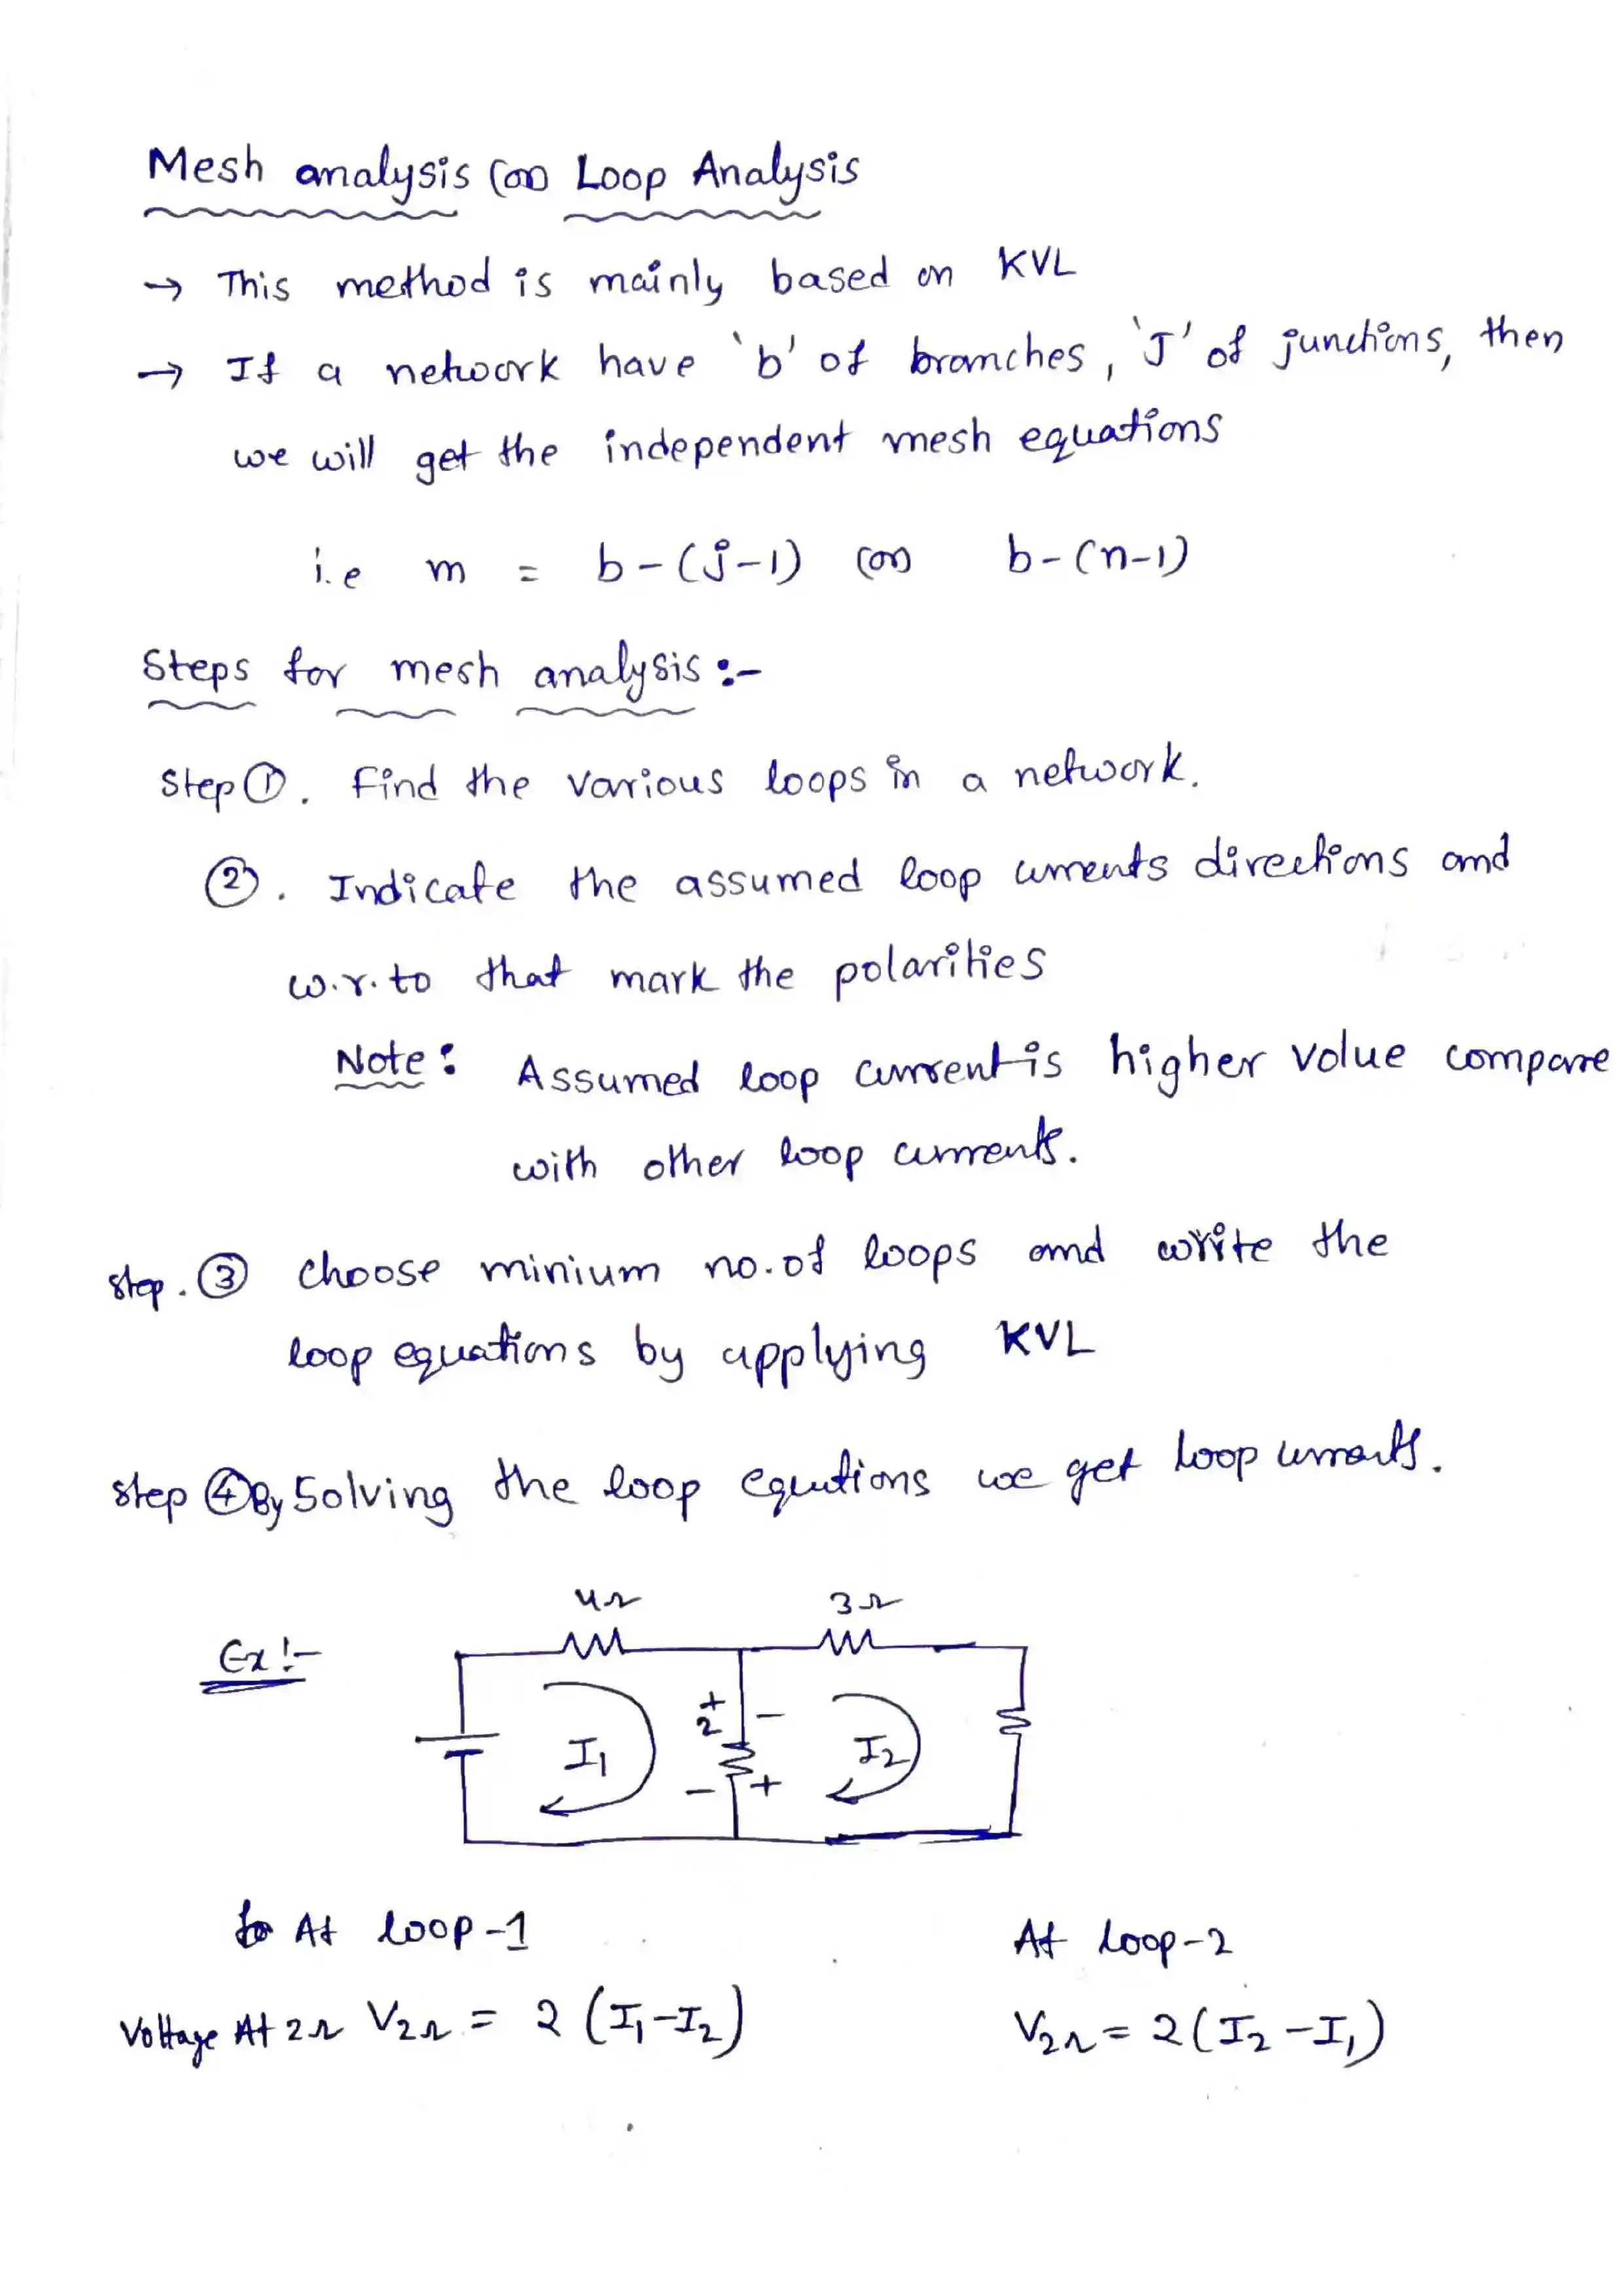 Mesh analysis (or) Loop Analysis
→ This method is mainly based on KVL
→ If a network have 'b' of branches, 'J' of junctions, then
we will get the independent mesh equations
i.e m = b-(j-1) (or) b-(n-1)
Steps for mesh analysis :-
Step ①. Find the various loops in a network.
②. Indicate the assumed loop currents directions and
w.r.to that mark the polarities
Note : Assumed loop current is higher value compare
with other loop currents.
step. ③ choose minium no.of loops and write the
loop equations by applying KVL
step ④ By Solving the loop equtions we get loop currents.
4Ω 3Ω
Ex !-
+ 2 -
I₁ I₂
- +
At loop-1 At loop-2
Voltage At 2Ω V₂Ω = 2 (I₁-I₂) V₂Ω = 2(I₂-I₁)